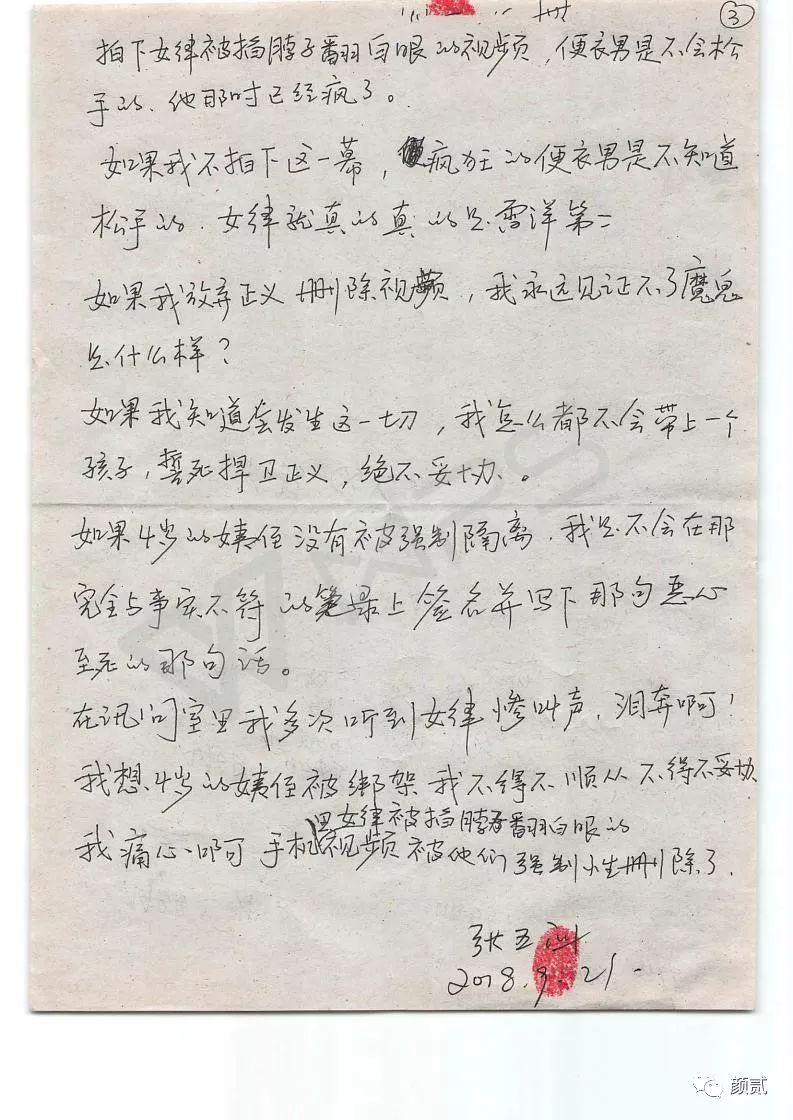 ③
拍下女律被掐脖子翻白眼的视频，便衣男是不会松
手的．他那时已经疯了。
如果我不拍下这一幕，疯狂的便衣男是不知道
松手的．女律就真的真的是雷洋第二
如果我放弃正义删除视频，我永远见证不了魔鬼
是什么样？
如果我知道会发生这一切，我怎么都不会带上一个
孩子，誓死捍卫正义，绝不妥协。
如果4岁的姨侄没有被强制隔离．我是不会在那
完全与事实不符的笔录上签名并写下那句恶心
至死的那句话。
在讯问室里我多次听到女律惨叫声．泪奔啊！
我想4岁的姨侄被绑架我不得不顺从不得不妥协
里女律被掐脖子翻白眼的
我痛心啊手机视频被他们强制性删除了．
张五洲
2018.9.21.
颜贰